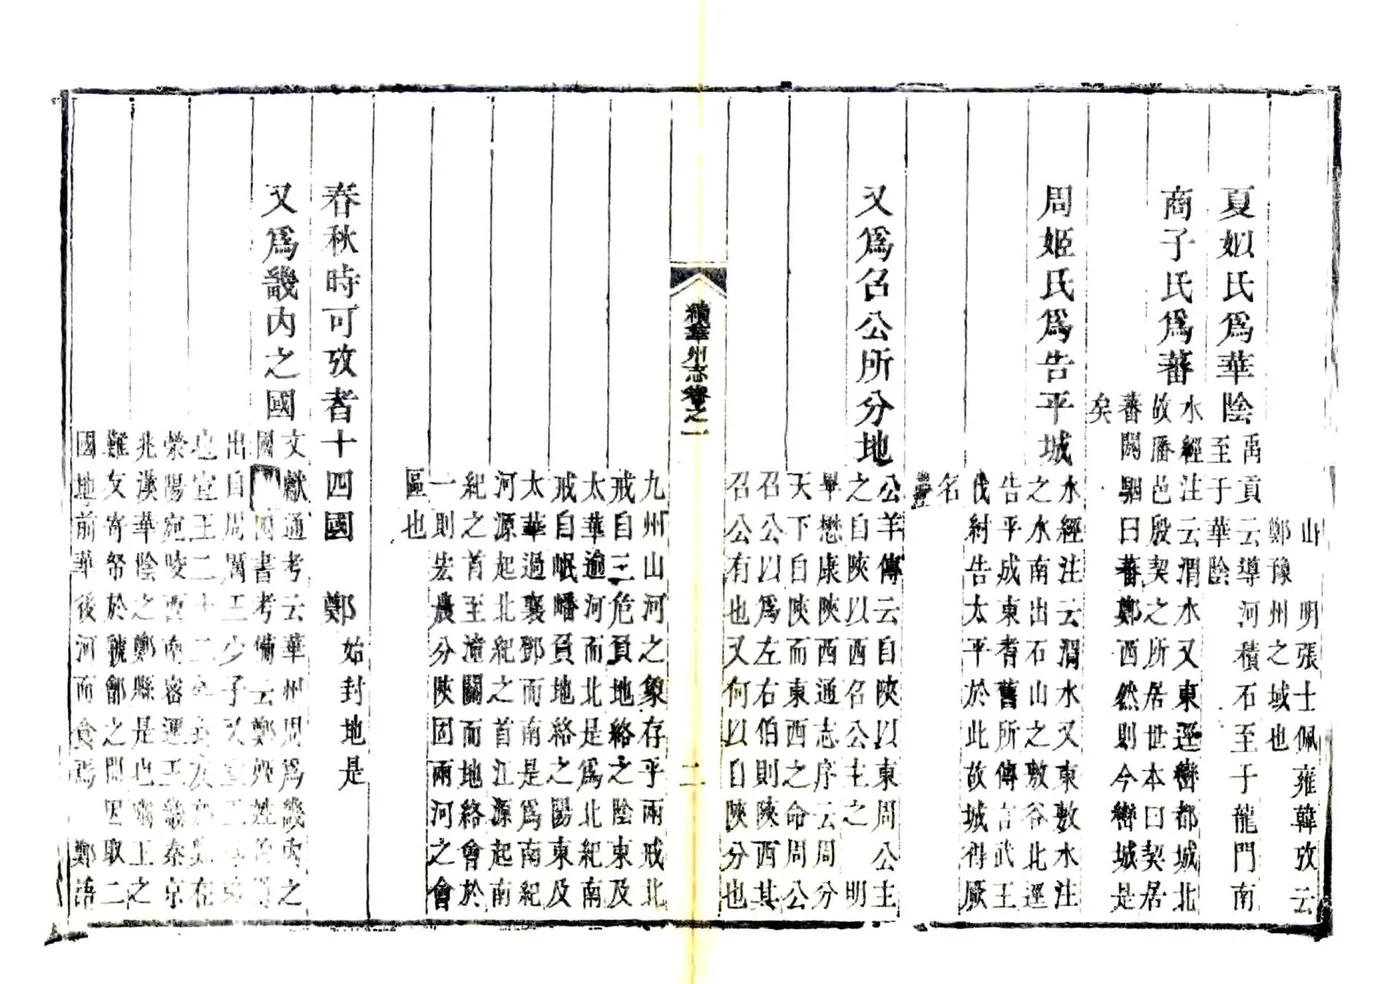 山 明張士佩雍韓攷云
鄭豫州之域也
夏姒氏為華陰 禹貢云導河積石至于龍門南
至于華陰
商子氏為蕃 水經注云渭水又東逕巒都城北
故藩邑殷契之所居世本曰契居
蕃闞駰曰蕃鄭西然則今巒城是
矣
周姬氏為告平城 水經注云渭水又東敷水注
之水南出石山之敷谷北逕
告平城東耆舊所傳言武王
伐紂告太平於此故城得厥
名
又為召公所分地 公羊傳云自陝以東周公主
之自陝以西召公主之 明
畢懋康陝西通志序云周分
天下自陝而東西之命周公
召公以為左右伯則陝西其
召公有也又何以自陝分也
續華州志卷之一
二
九州山河之象存乎兩戒北
戒自三危負地絡之陰東及
太華逾河而北是為北紀南
戒自岷嶓負地絡之陽東及
太華過襄鄧而南是為南紀
河源起北紀之首江源起南
紀之首至潼關而地絡會於
一則宏農分陝固兩河之會
區也
春秋時可攷者十四國 鄭 始封地是
又為畿內之國 文獻通考云華州周為畿內之
國書考備云鄭姬姓
出自周厲王少子又宣王
也宣王二十二年封友於鄭在
滎陽宛陵西南 秦京
兆漢華陰之鄭縣是也幽王之
難友寄帑於虢鄶之間因取二
國地前華後河而食焉 鄭語